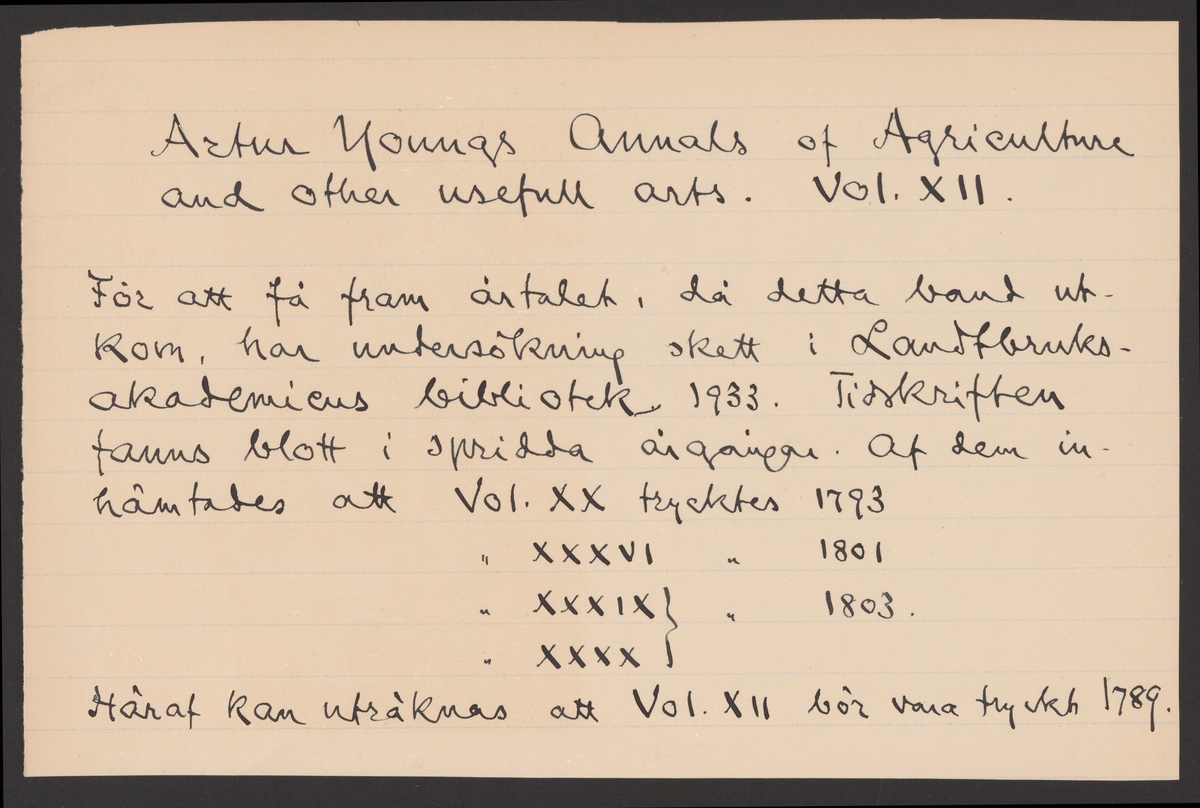 Artur Youngs Annals of Agriculture
and other usefull arts. Vol. XII.
För att få fram årtalet, då detta band ut-
kom, har undersökning skett i Landtbruks-
akademiens bibliotek, 1933. Tidskriften
fanns blott i spridda årgångar. Af dem in-
hämtades att Vol. XX trycktes 1793
" XXXVI " 1801
" XXXIX } " 1803.
" XXXX
Häraf kan uträknas att Vol. XII bör vara tryckt 1789.